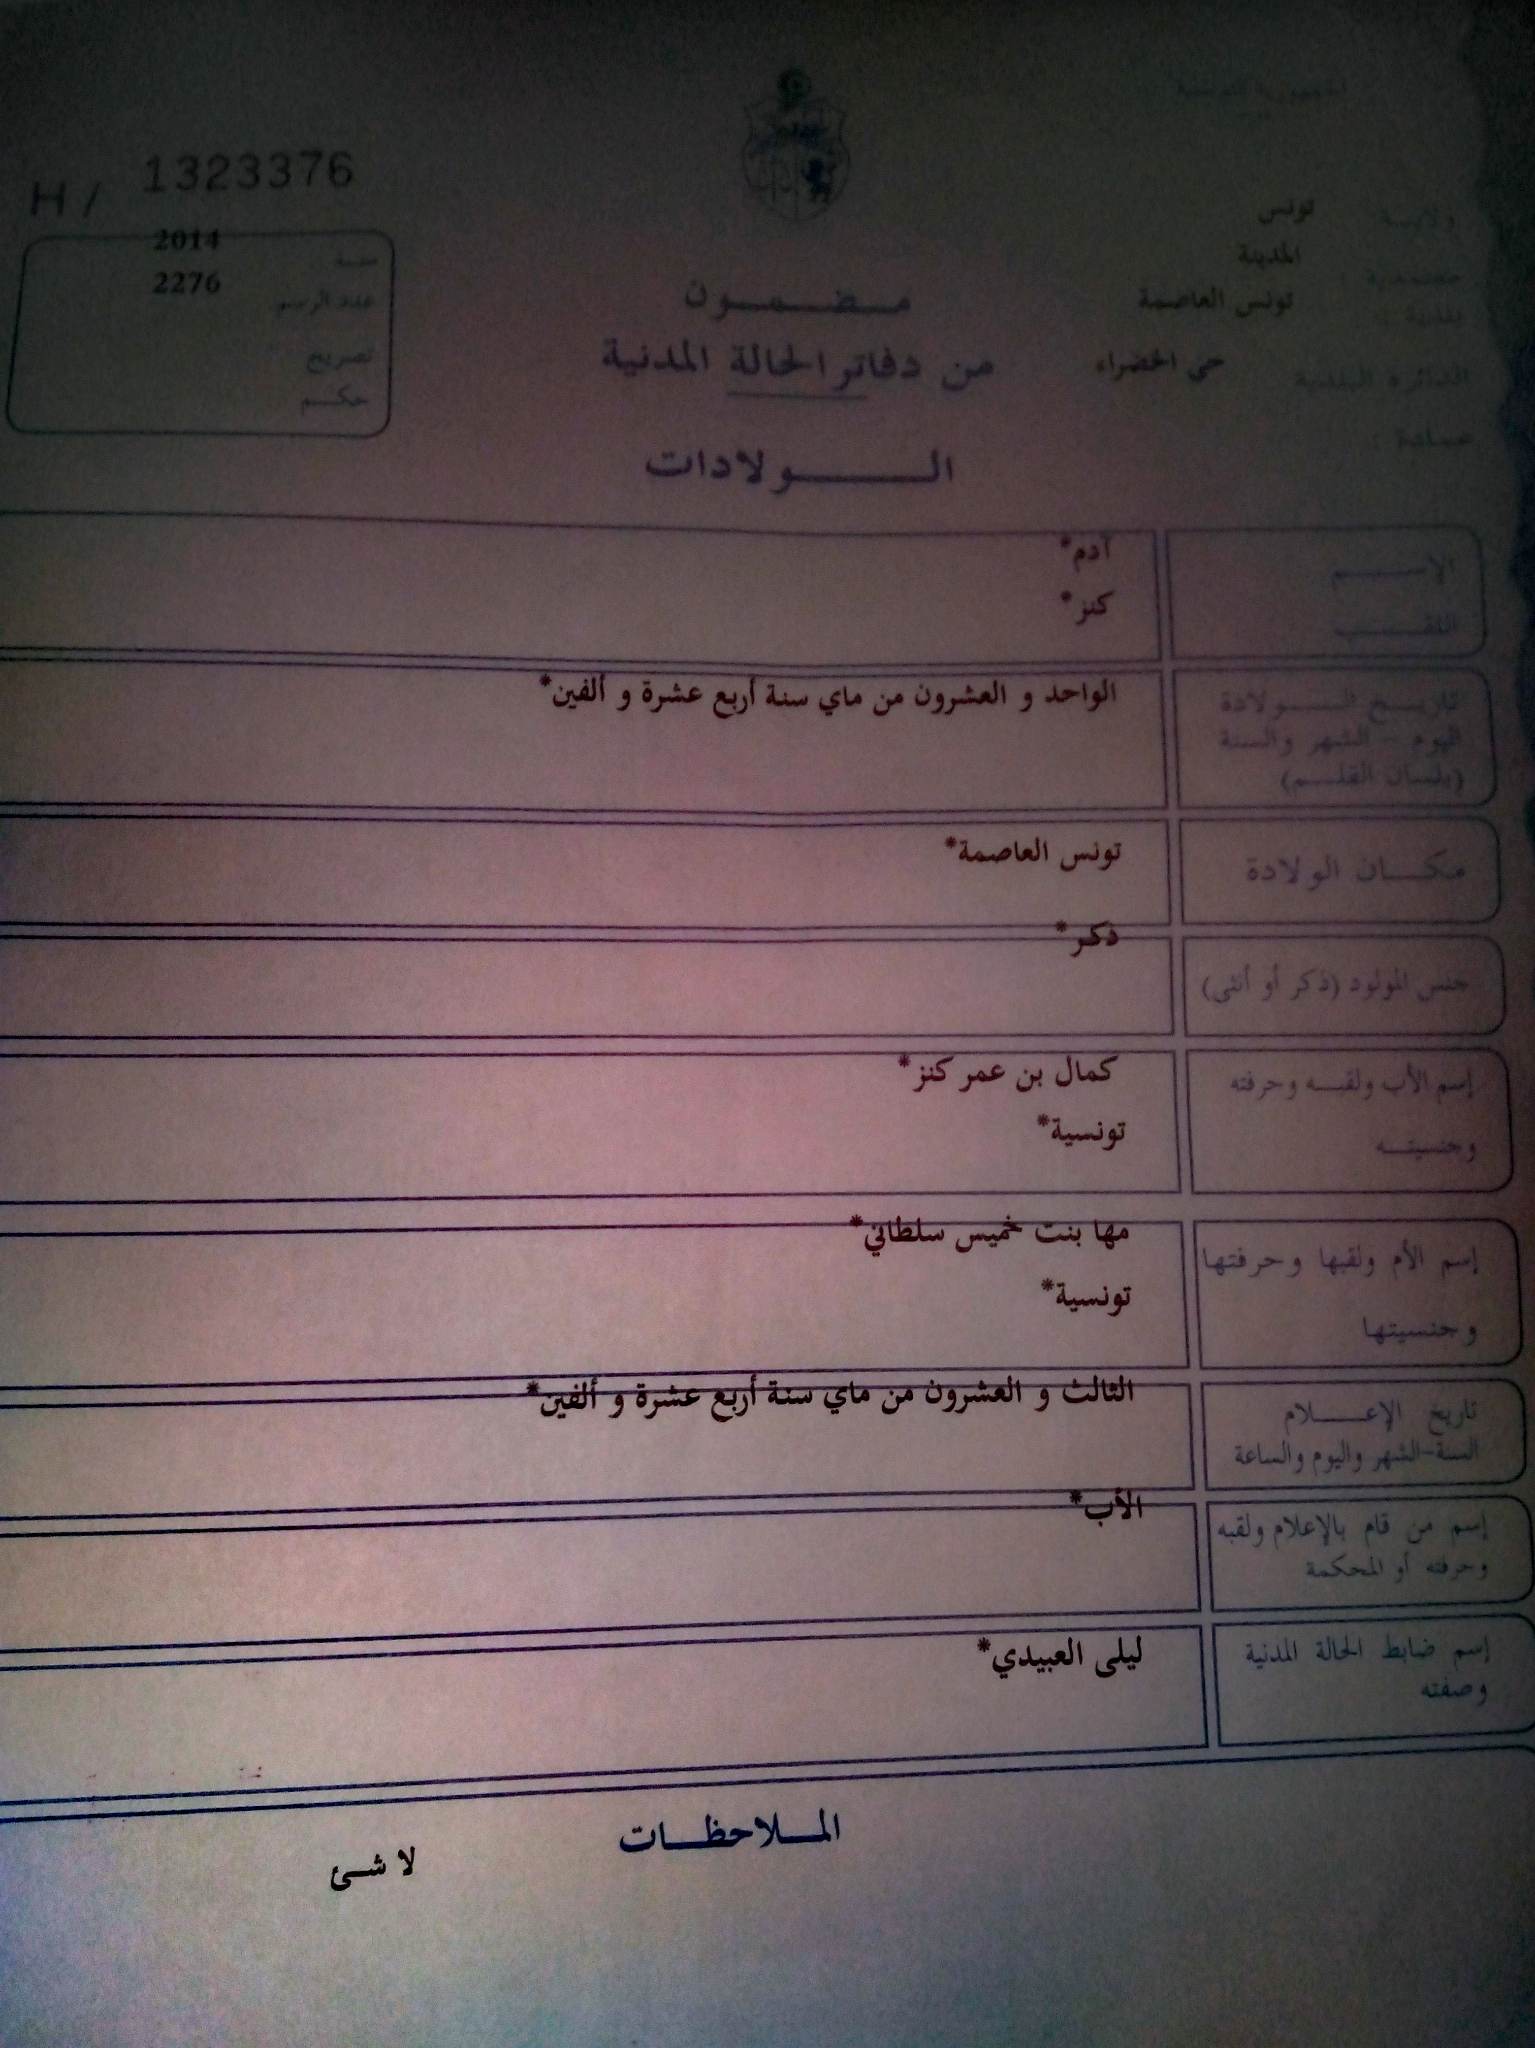 الجمهورية التونسية
H / 1323376
ولايـة تونس
معتمدية : المدينة
بلدية : تونس العاصمة
الدائرة البلدية حي الخضراء
عمادة :
سنة 2014
عدد الرسم 2276
تصريح
حكم
مضمون
من دفاتر الحالة المدنية
الولادات
الإسم آدم*
اللقب كنز*
تاريخ الولادة الواحد و العشرون من ماي سنة أربع عشرة و ألفين*
اليوم - الشهر والسنة
(بلسان القلم)
مكان الولادة تونس العاصمة*
جنس المولود (ذكر أو أنثى) ذكر*
إسم الأب ولقبه وحرفته كمال بن عمر كنز*
وجنسيته تونسية*
إسم الأم ولقبها وحرفتها مها بنت خميس سلطاني*
وجنسيتها تونسية*
تاريخ الإعلام الثالث و العشرون من ماي سنة أربع عشرة و ألفين*
السنة-الشهر واليوم والساعة
إسم من قام بالإعلام ولقبه الأب*
وحرفته أو المحكمة
إسم ضابط الحالة المدنية ليلى العبيدي*
وصفته
الملاحظات
لا شئ